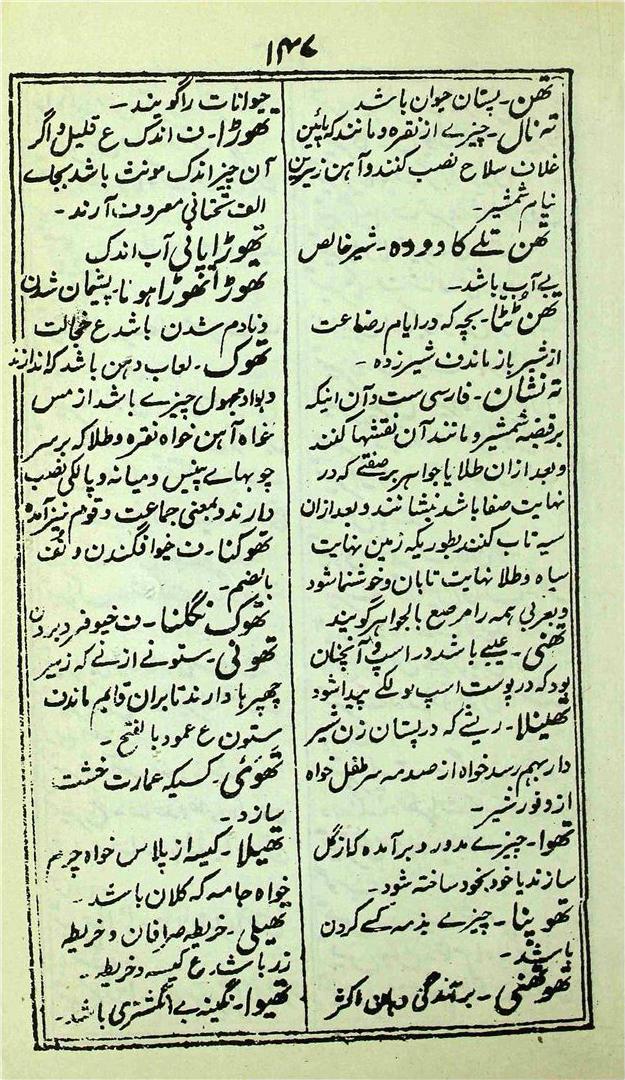 ۱۴۷
تھن۔ پستان حیوان باشد
تہ نال۔ چیزے از نقرہ و مانند کہ پائین
غلاف سلاح نصب کنند و آہن زیرین
نیام شمشیر۔
تھن تلے کا دودہ۔ شیر خالص
بے آب باشد۔
تھن ٹٹا۔ بچہ کہ در ایام رضاعت
از شیر باز ماند ف شیر زدہ۔
تہ نشان۔ فارسی ست و آن اینکہ
بر قبضہ شمشیر و مانند آن نقشہا کنند
و بعد ازان طلا یا جواہر بر صفتے کہ در
نہایت صفا باشد بنشانند و بعد ازان
سیہ تاب کنند بطوریکہ زمین نہایت
سیاہ و طلا نہایت تابان و خوشنما شود
و بعربی ہمہ را مرصع بالجواہر گویند
تھنی۔ عیبے باشد در اسپ و آنچنان
بود کہ در پوست اسپ بولکے پیدا شود
تھنیلا۔ ریشے کہ در پستان زن شیر
دار بہم رسد خواہ از صدمہ سر طفل خواہ
از وفور شیر۔
تھوا۔ چیزے مدور و برآمدہ کہ از گل
سازند یا خود بخود ساختہ شود۔
تھوپنا۔ چیزے بذمہ کسے کردن
باشد۔
تھوتھنی۔ برآمدگی دہان اکثر
حیوانات را گویند۔
تھوڑا۔ ف اندک ع قلیل و اگر
آن چیز اندک مونث باشد بجاے
الف تحتانی معروف آرند۔
تھوڑا پانی آب اندک
تھوڑا تھوڑا ہونا۔ پشیمان شدن
و نادم شدن باشد ع خجالت
تھوک۔ لعاب دہن باشد کہ اندازند
و بواو مجہول چیزے باشد از مس
خواہ آہن خواہ نقرہ و طلا کہ بر سر
چوبہاے پینس و میانہ و پالکی نصب
دارند و بمعنی جماعت و قوم نیز آمدہ
تھوکنا۔ ف خیو افگندن و تف
بالضم۔
تھوک نگلنا۔ ف خیو فرو بردن
تھونی۔ ستونے از نے کہ زیر
چھپرہا دارند تا بران قایم ماند ف
ستون ع عمود بالفتح۔
تھوئی۔ کسیکہ عمارت خشت
سازد۔
تھیلا۔ کیسہ از پلاس خواہ چرم
خواہ جامہ کہ کلان باشد۔
تھیلی۔ خریطہ صرافان و خریطہ
زر باشد ع کیسہ و خریطہ۔
تھیوا۔ نگینہ بے انگشتری باشد۔